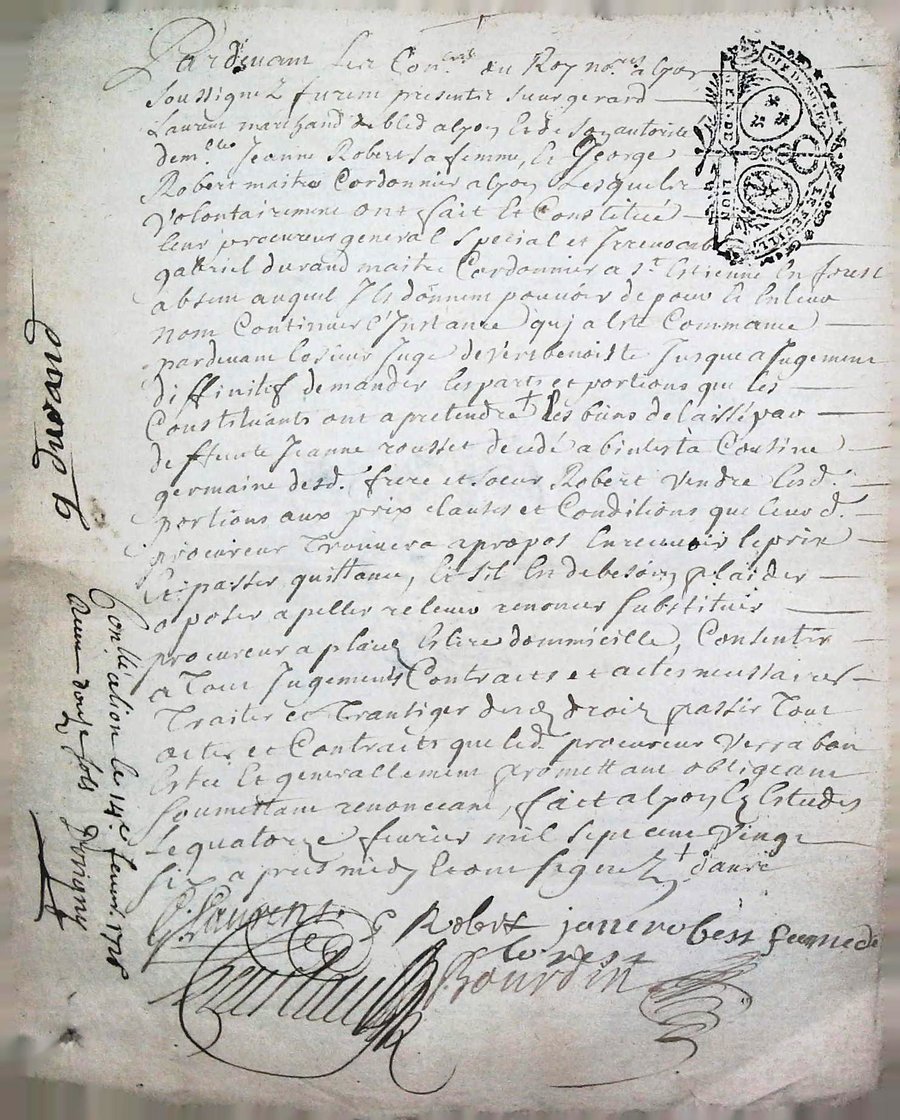 Pardevant les Con.ers du Roy no.res a Lyon
soussignez furent presents sieur gerard
Laurent marchand de bled a lyon et de son autorité
dem.lle Jeanne Robert sa femme, et George
Robert maitre Cordonnier a lyon Lesquels
volontairement ont fait et Constitué
leur procureur general special et Irrevocab
gabriel durand maitre Cordonnier a S.t Estienne en forest
absent auquel Ils donnent pouvoir de pour et en leur
nom Continuer l'Instance qui a esté Commancé
pardevant le sieur Juge de Jusque a Jugement
diffinitif demander les parts et portions que les
Constituants ont a pretendre + les biens delaissé par
deffunte Jeanne rousset decedé abintesta Cousine
germaine desd. frere et soeur Robert vendre lesd.
portions aux prix clauses et Conditions que leur d.
procureur trouvera apropos en recevoir le prix
Et passer quittance, Et sil en de besoin plaider
oposer apeller relever renoncer substituer
procureur a plaid Eslire dommicille, Consentir
a Tout Jugements Contracts et actes nessaires
Traiter et Transiger desd droits passer Tout
actes et Contracts que led. procureur verra bon
Estre Et generallement promettant obligeant
soumettant renonceant, fait a lyon Ez Estudes
Le quatorze fevrier mil sept cent vingt
six apres midy Et ont signez + dans
G. Laurent. G Robert janne robert famme de
lorest
Bourdin
GENE DE LION
DIX DENIERS
LE FEUILLE
procura g
Con.lle a lion le 14.e fevri. 1726
Receu douze sols